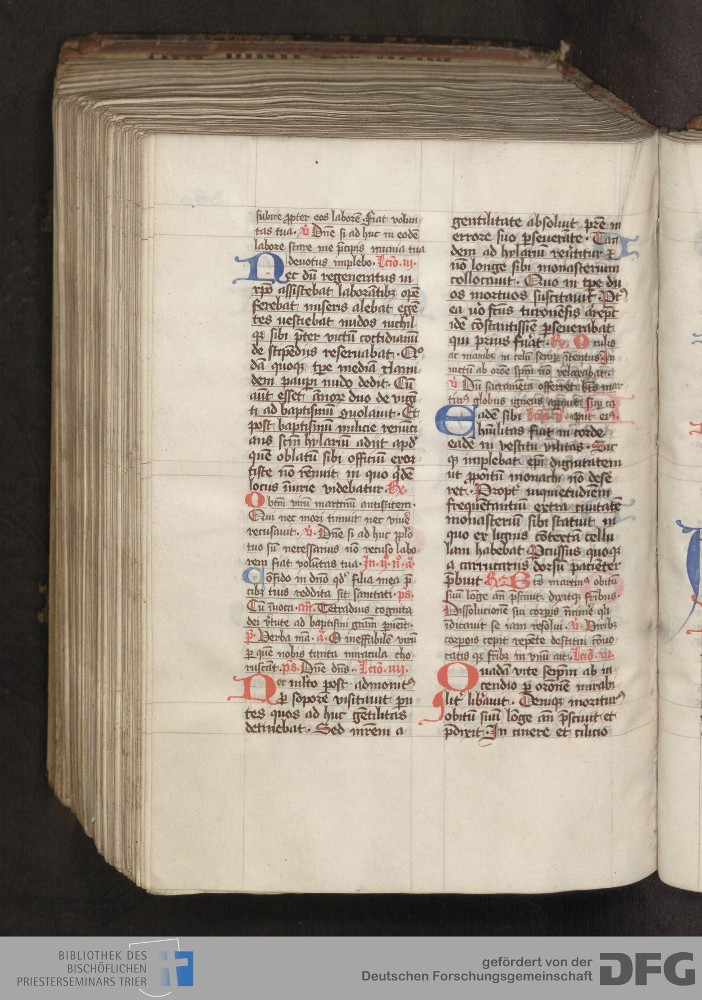 subire ꝓpter eos laborē. fiat volun
tas tua. v̄ Dn̄e si ad huc in eodē
labore stare me p̄cipis munia tua
deuotus implebo. lc̄io. iii.
Nec dū regeneratus in
xp̄o assistebat laborātibꝫ opē
ferebat miseris alebat egē
tes vestiebat nudos nichil
qꝫ sibi p̄ter victū cottidianū
de stipēdiis reseruabat. Qͦ
dā quoqꝫ tp̄e mediā clami
dem paupi nudo dedit. Cū
aūt esset ānoꝝ duo de vigī
ti ad baptismū ꝯuolauit. Et
post baptismū milicie renūci
ans sc̄m hylariū adiit apd'
quē oblatū sibi officiū exor
tiste nō rēnuit in quo q̄dē
locus iniurie videbatur. Rx̄.
O btm̄ virū martinū antistitem.
Qui nec mori timuit nec viuē
recusauit. v̄. Dn̄e si ad huc pplō
tuo sū necessarius nō recuso labo
rem fiat volūtas tua. In. ii. n̄. a᷑
Cōfido in dn̄o qd' filia mea p̄
cibꝫ tuis reddita sit sanitati. ps.
Cū īuoca. an̄. Tetradius cognita
dei v̄tute ad baptismi grām puēit.
p̄. Verba m̄a. a᷑. O ineffabilē virū
p quē nobis tanta miracula cho
ruscāt. ps. Dn̄e dn̄s. lc̄io. iiii.
Nec ml̄to post admonitꝰ
p soporē visitauit pn̄
tes quos ad huc gētilitas
detinebat. Sed mrēm a
gentilitate absoluit. prē in
errore suo pseuerāte. Tan
dem ad hylariū reūtitur ⁊
nō longe sibi monasterium
collocauit. Quo in tp̄e du
os mortuos suscitauit. Pt'
ea vo fc̄us turonēsis arep̄c
ide cōstantissīe pseuerabat
qui prius fuāt. Rx̄. O culis
ac manibꝫ in celū semp ītentus In
uictū ab orōe spm̄ nō relaxabat.
v̄ Dū sacramēta offerret btūs mar
tinꝰ globus igneus apparuit sup ca
put eiꝰ.
Eadē sibi lc̄io. v.
hūilitas fuit in corde
eadē in vestitu vilitas. Sic
qꝫ implebat ep̄i dignitatem
ut ꝓpoītū monachi nō dese
ret. Propt' inquietudinēm
frequētantiū extra ciuitatē
monasteriū sibi statuit in
quo ex lignis cōtextā cellu
lam habebat. Pcussus quoqꝫ
a carrucariis dorsū pacient'
p̄buit Rx̄. Btūs martinꝰ obitū
suū lōge añ p̄sciuit. dixitqꝫ frībus
Dissolucionē sui corpis īminē qꝫ
īdicauit se iam resolui. v̄. Viribꝫ
corporis cepit repēte destitui cōuo
catis qꝫ frībꝫ in vnū ait. lc̄io. vi.
Quadā vice sepm̄ ab in
cendio p orōnē mirabi
lit' lib̄auit. Deniqꝫ moriturꝰ
obitū suū lōge añ p̄sciuit et
p̄dixit. In cinere et cilicio
BIBLIOTHEK DES
BISCHÖFLICHEN
PRIESTERSEMINARS TRIER
gefördert von der
Deutschen Forschungsgemeinschaft
DFG